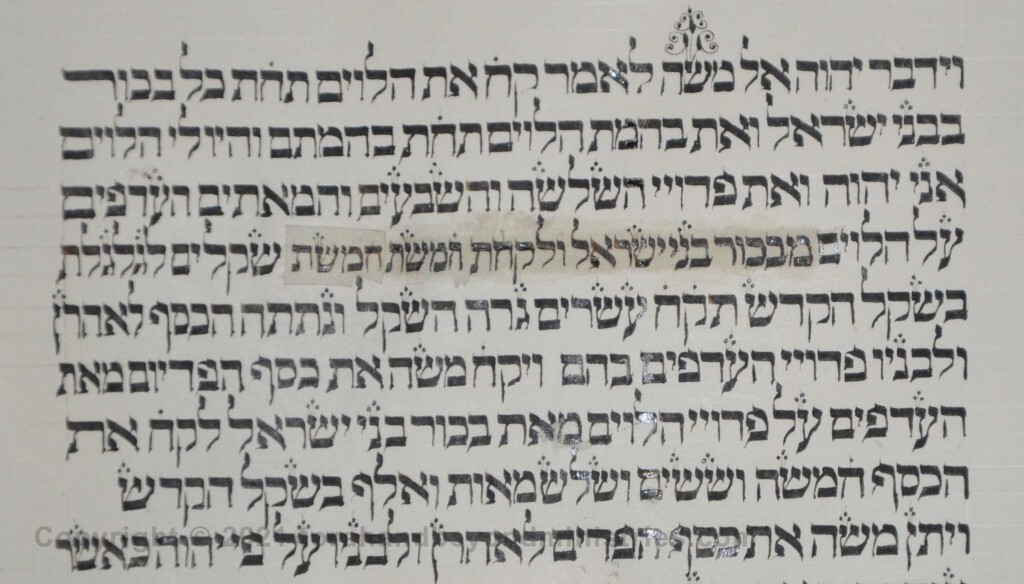 וידבר יהוה אל משה לאמר קח את הלוים תחת כל בכור
בבני ישראל ואת בהמת הלוים תחת בהמתם והיו לי הלוים
אני יהוה ואת פדויי השלשה והשבעים והמאתים העדפים
על הלוים מבכור בני ישראל ולקחת חמשת חמשת שקלים לגלגלת
בשקל הקדש תקח עשרים גרה השקל ונתתה הכסף לאהרן
ולבניו פדויי העדפים בהם ויקח משה את כסף הפדיום מאת
העדפים על פדויי הלוים מאת בכור בני ישראל לקח את
הכסף חמשה וששים ושלש מאות ואלף בשקל הקדש
Copyright ©
ויתן משה את כסף הפדים לאהרן ולבניו על פי יהוה כאשר